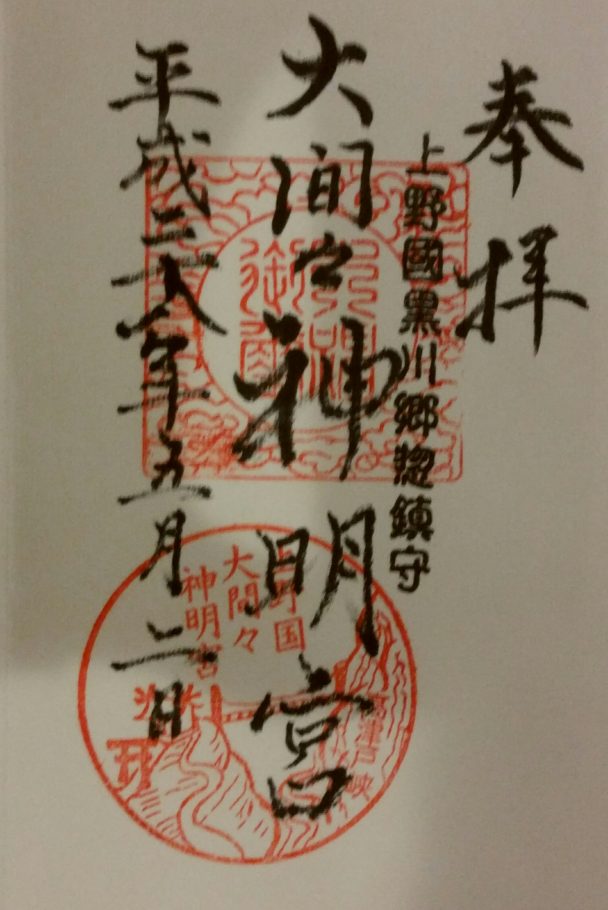 奉拝
上野國黒川郷惣鎮守
大間々神明宮
平成二十八年五月二日
上野国
大間々
神明宮
高津戸峡